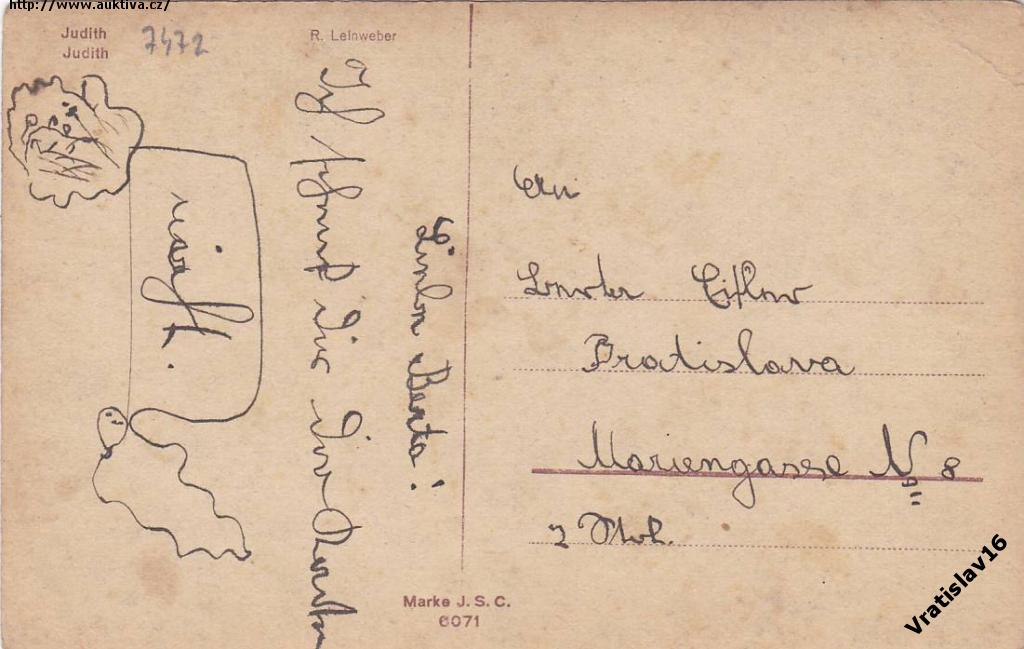 http://www.auktiva.cz/
Judith
Judith
7472
R. Leinweber
Liebe Berta!
Ich
dir die
nicht.
An
Berta
Bratislava
Mariengasse N 8
2 Stk.
Marke J. S. C.
6071
Vratislav16